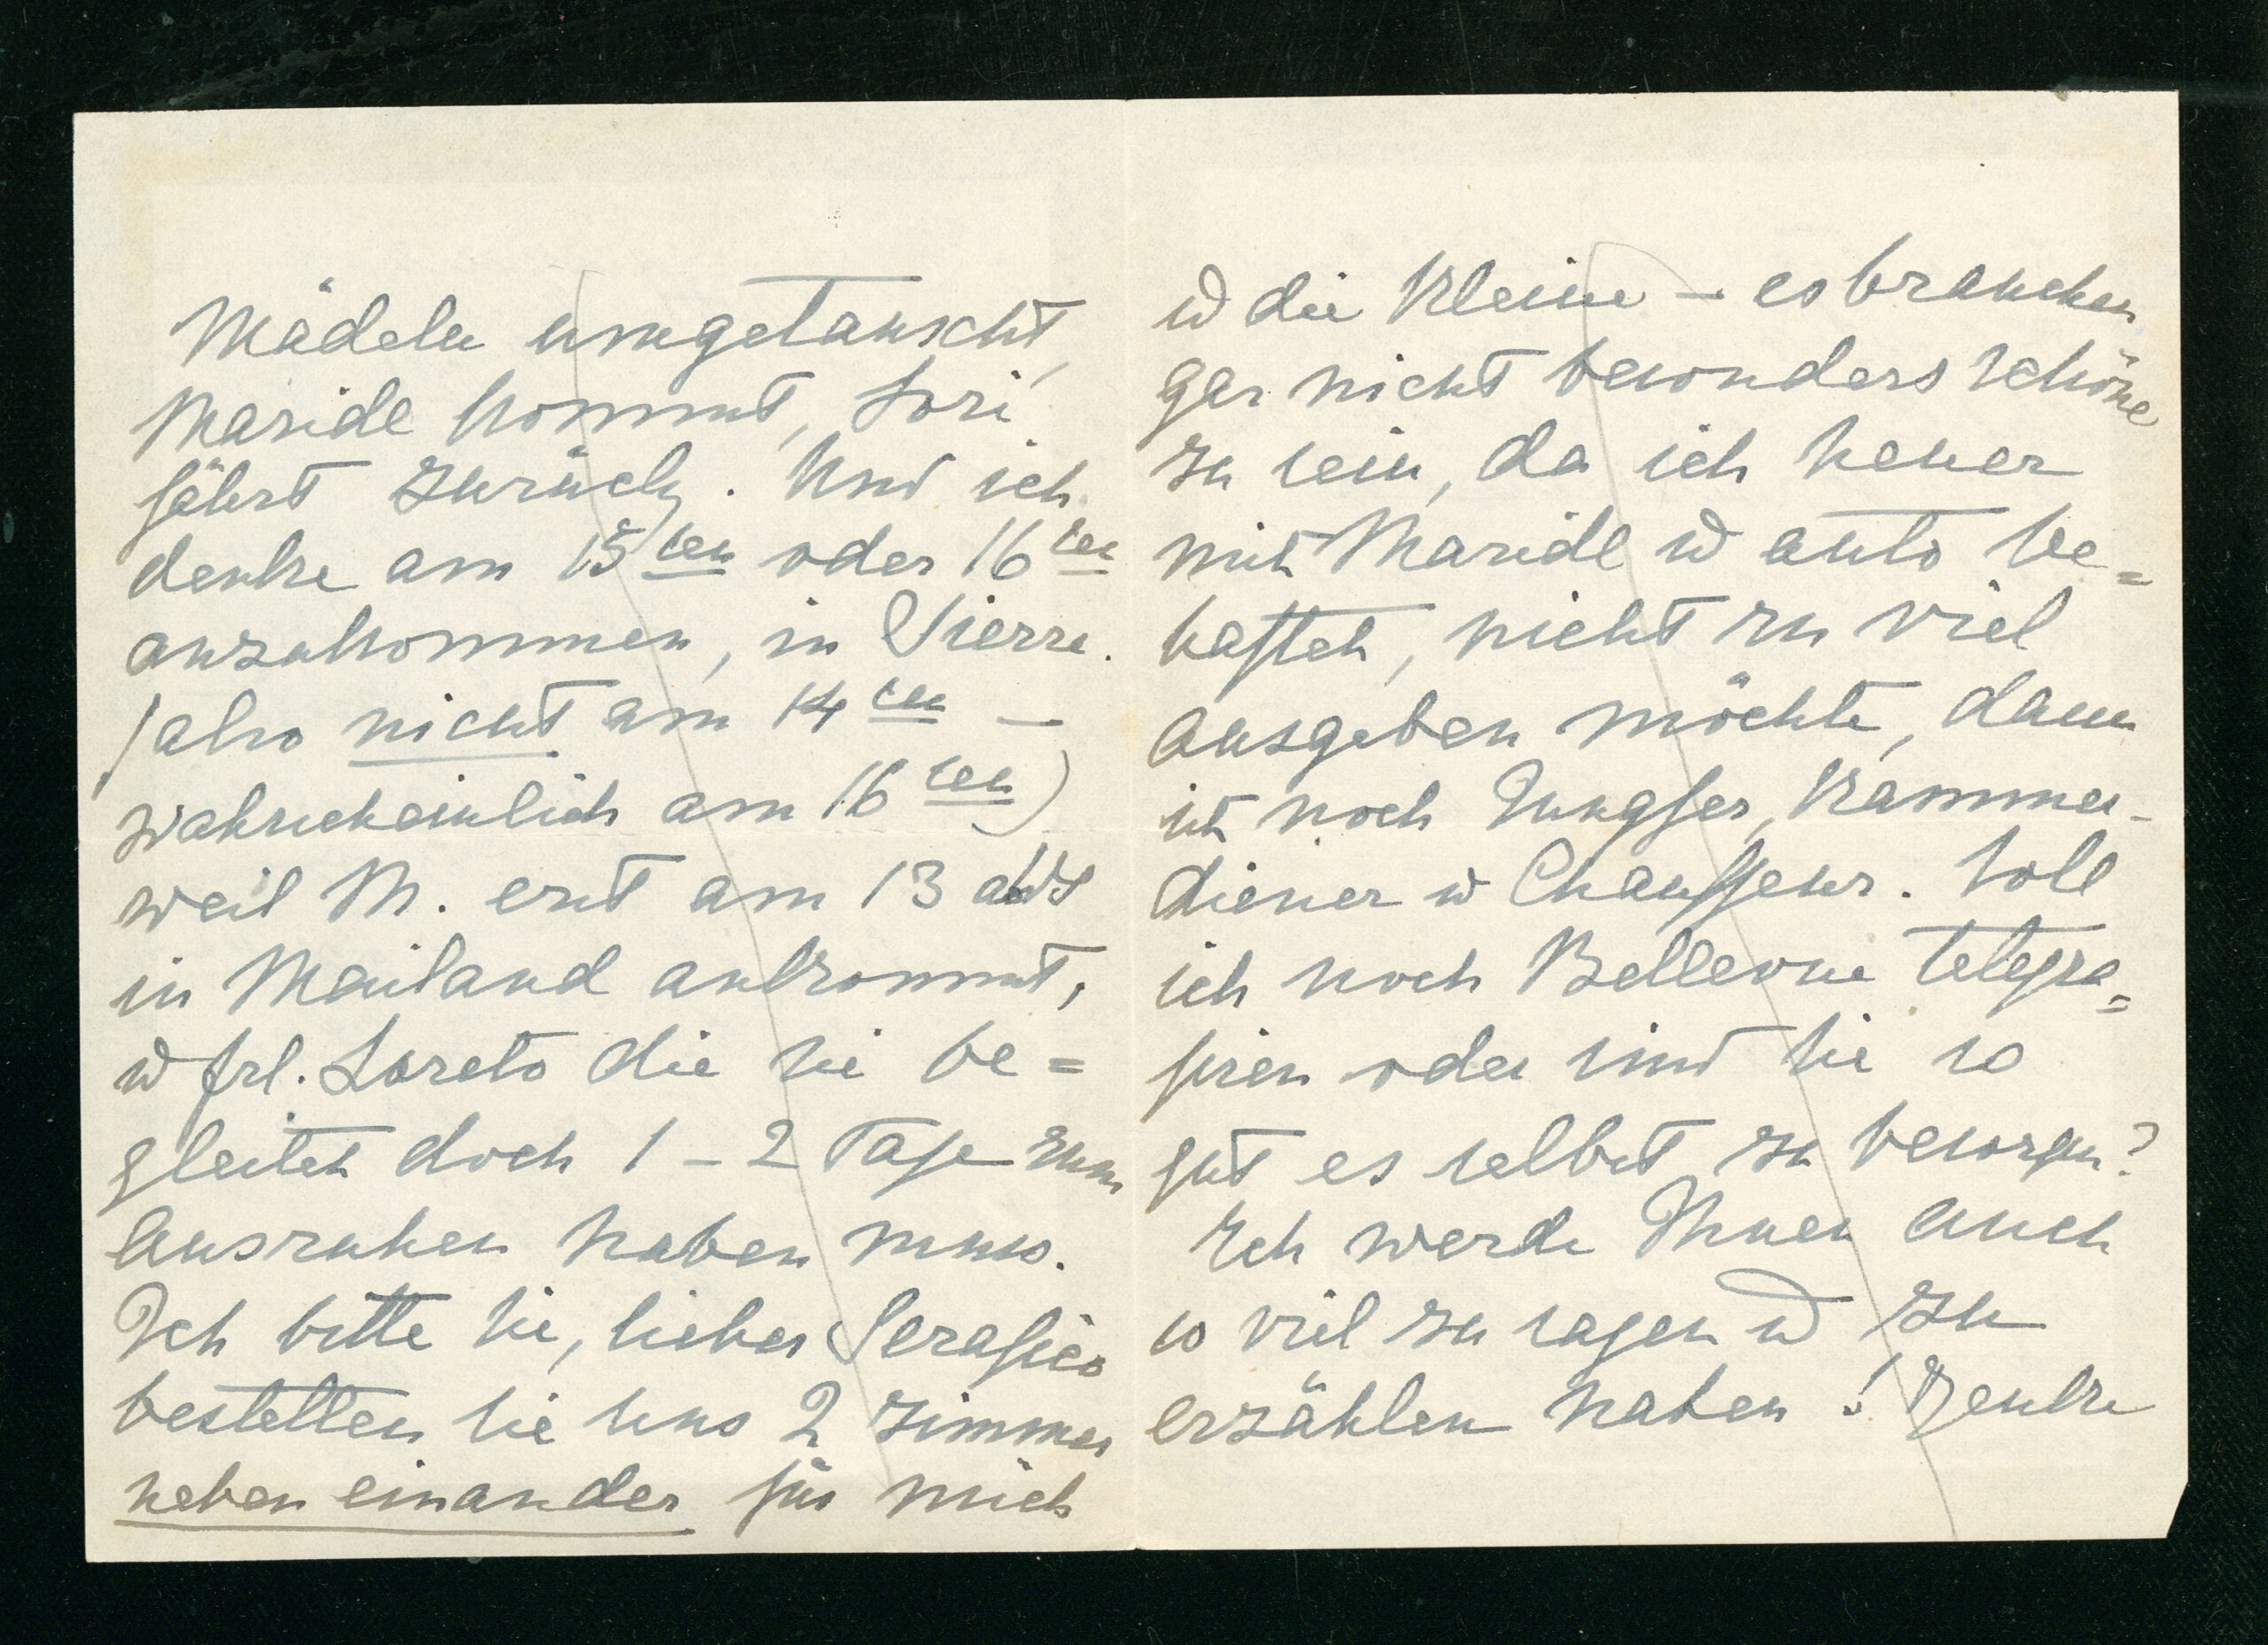 Mädeln umgetauscht,
Maridl kommt, Lori
fährt zurück. Und ich
denke am 15ten oder 16ten
anzukommen, in Sierre.
(also nicht am 14ten –
wahrscheinlich am 16ten)
weil M. erst am 13 abds
in Mailand ankommt,
u frl. Loreto die sie be=
gleitet doch 1–2 Tage zum
Ausruhen haben muss.
Ich bitte Sie, lieber Serafico
bestellen Sie uns 2 Zimmer
neben einander für mich
u die Kleine – es brauchen
gar nicht besonders schöne
zu sein, da ich heuer
mit Maridl u auto be=
haftet, nicht zu viel
ausgeben möchte, dann
ist noch Jungfer, Kammer-
diener u Chauffeur. Soll
ich noch Bellevue telegra=
firen oder sind Sie so
gut es selbst zu besorgen?
Ich werde Ihnen auch
so viel zu sagen u zu
erzählen haben! Denke